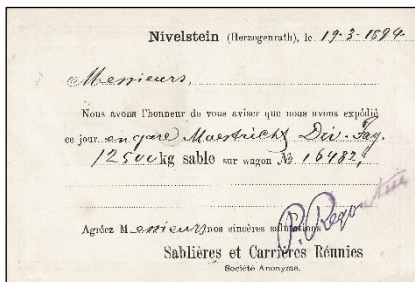 Nivelstein (Herzogenrath), le 19-3-1894
Messieurs,
Nous avons l'honneur de vous aviser que nous avons expédié
ce jour en gare Maestricht Div.
12500 kg sable sur wagon № 16482,
Agréez Messieurs nos sincères salutations
Sablières et Carrières Réunies
Société Anonyme.